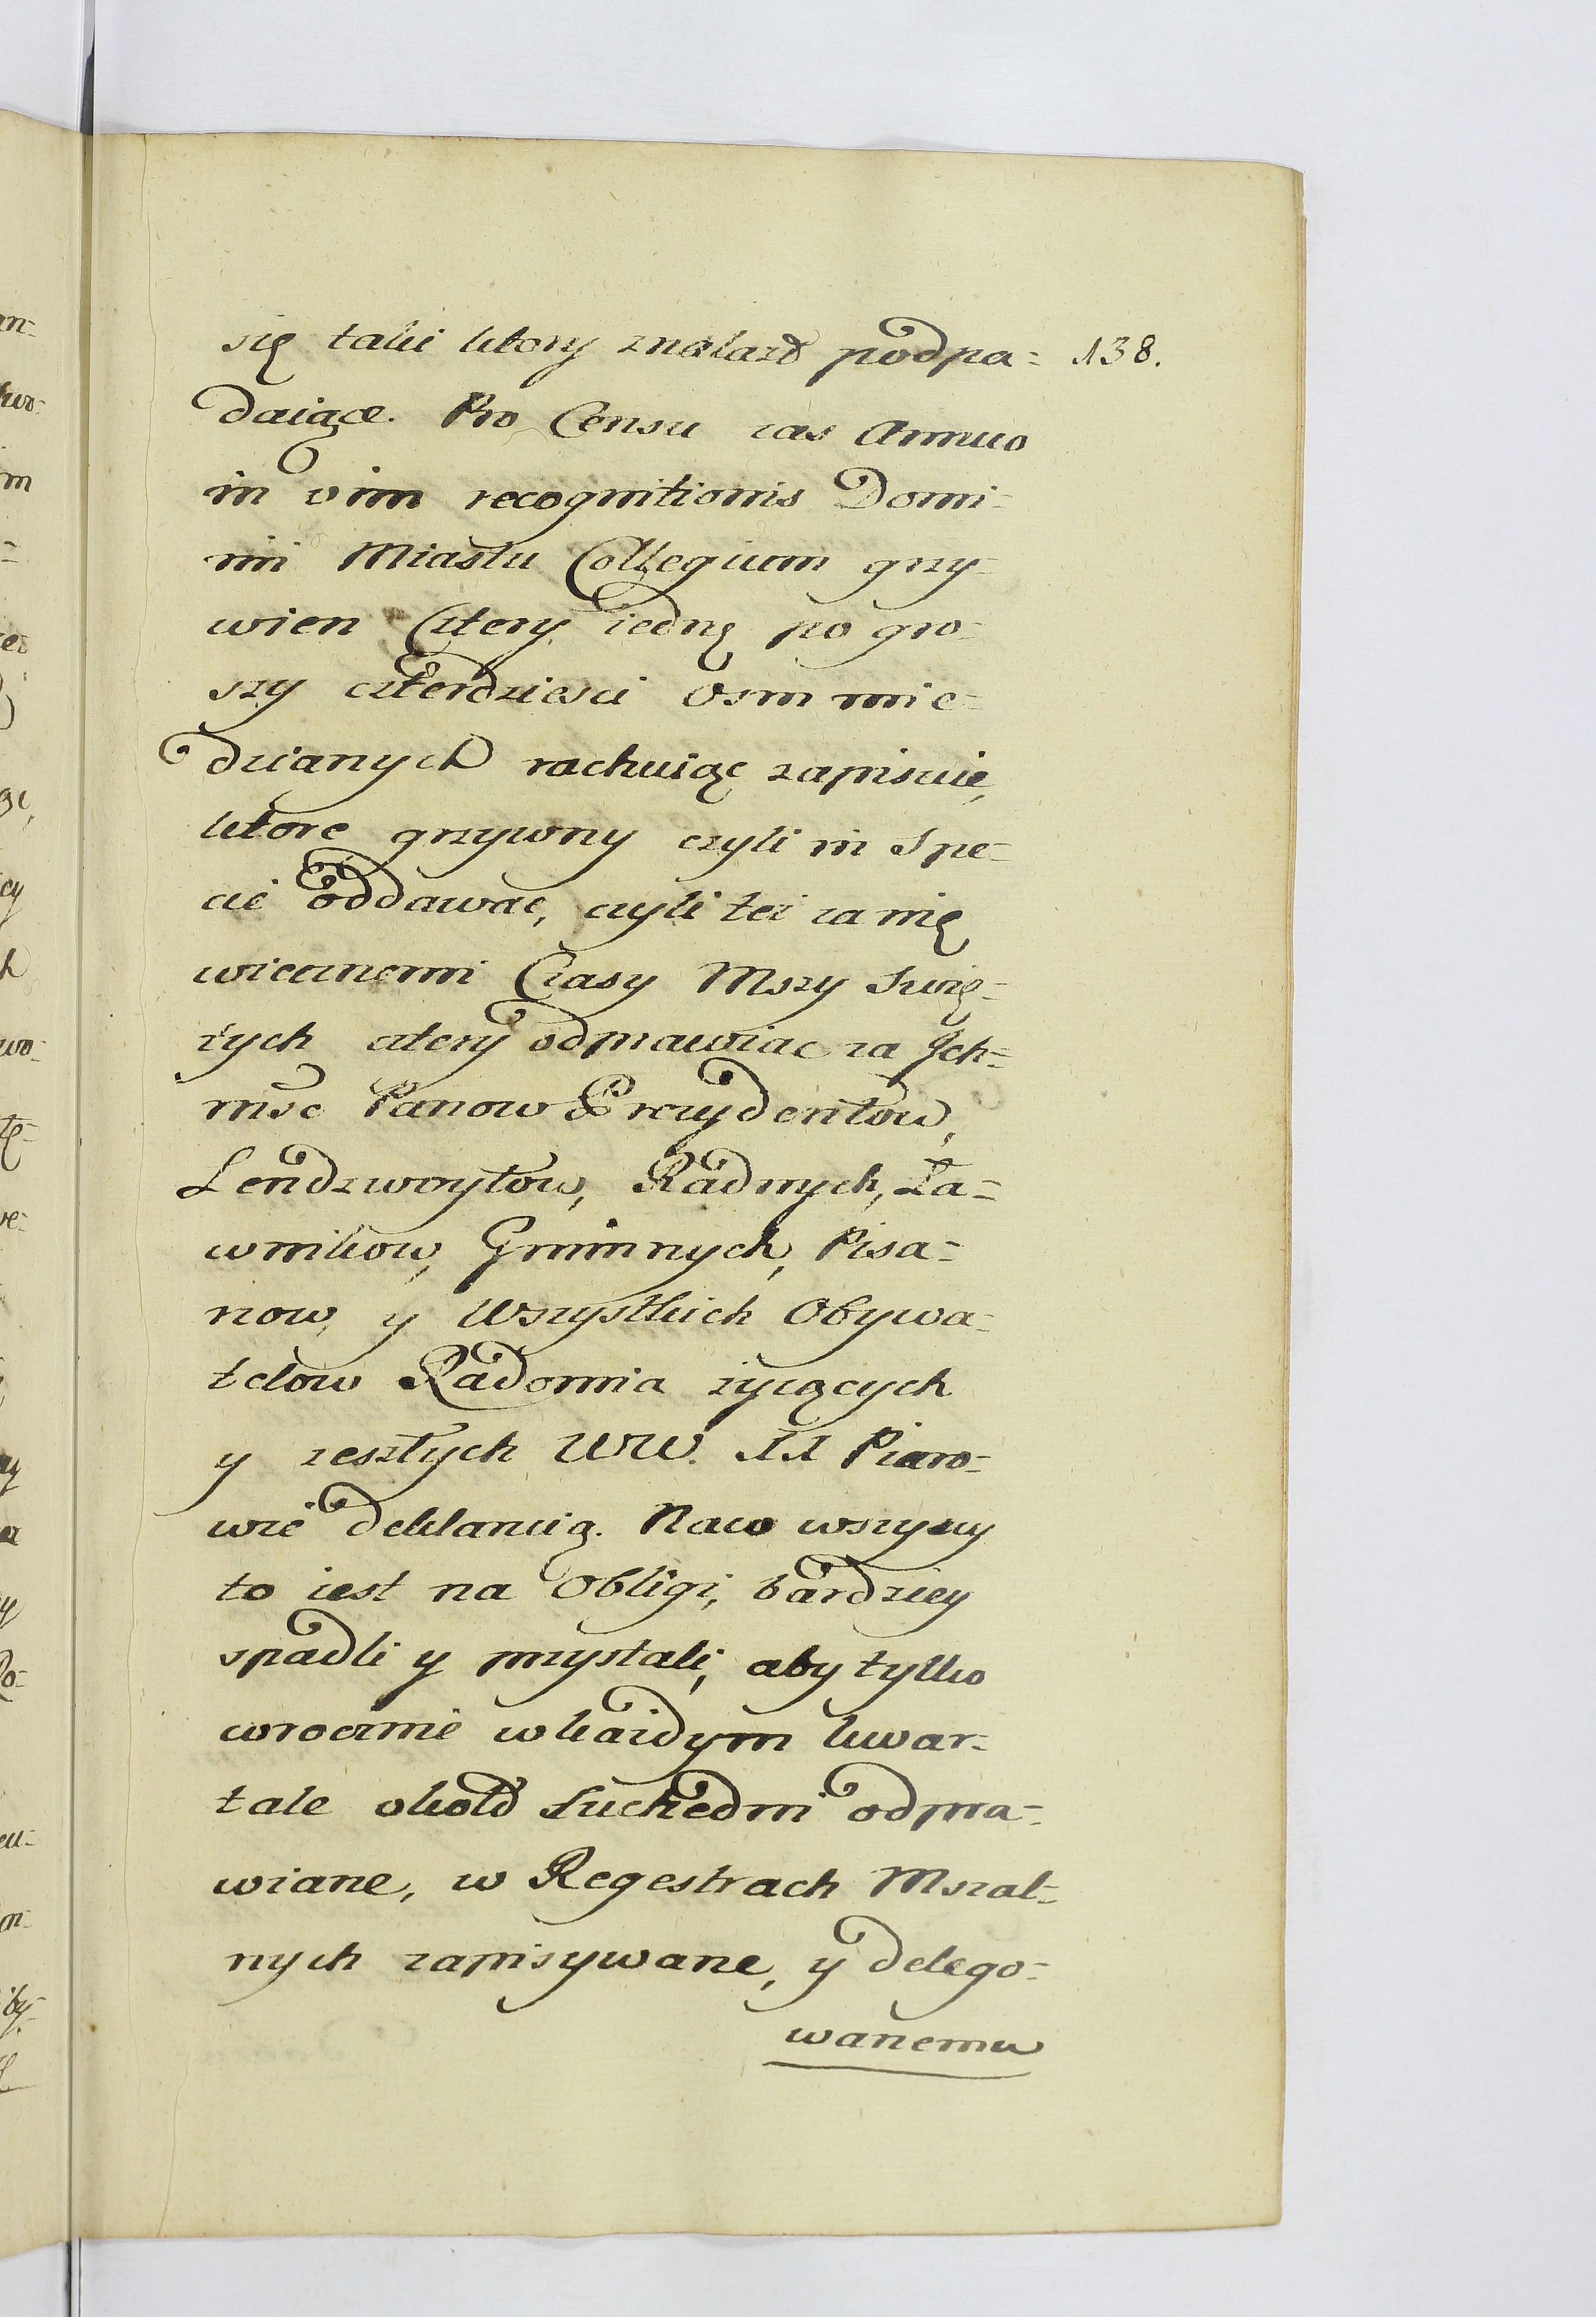 się taki ktory znalazł podpa= 138.
daiące. Pro Censu zas Annuo
in vim recognitionis Domi=
nii Miastu Collegium grzy=
wien Cztery iednę po gro=
szy czterdziesci Osm mie=
dzianych rachuiąc zapisuie,
ktore grzywny czyli in Spe=
cie oddawac, czyli tez za nię
wiecznemi Czasy Mszy Swię=
tych cztery odprawiac za Ich=
msc Panow Prezydentow,
Lendzwoytow, Radnych, Ła=
wnikow, Gminnych, Pisa=
rzow y Wszystkich Obywa=
telow Radomia zyiących
y zeszłych WW. XX Piaro=
wie deklaruią. Naco wszyscy
to iest na Obligi, bardziey
spadli y przystali, aby tylko
wrocznie w kazdym kwar=
tale okoł Suchedni odpra=
wiane, w Regestrach Mszal=
nych zapisywane, y delego=
wanemu